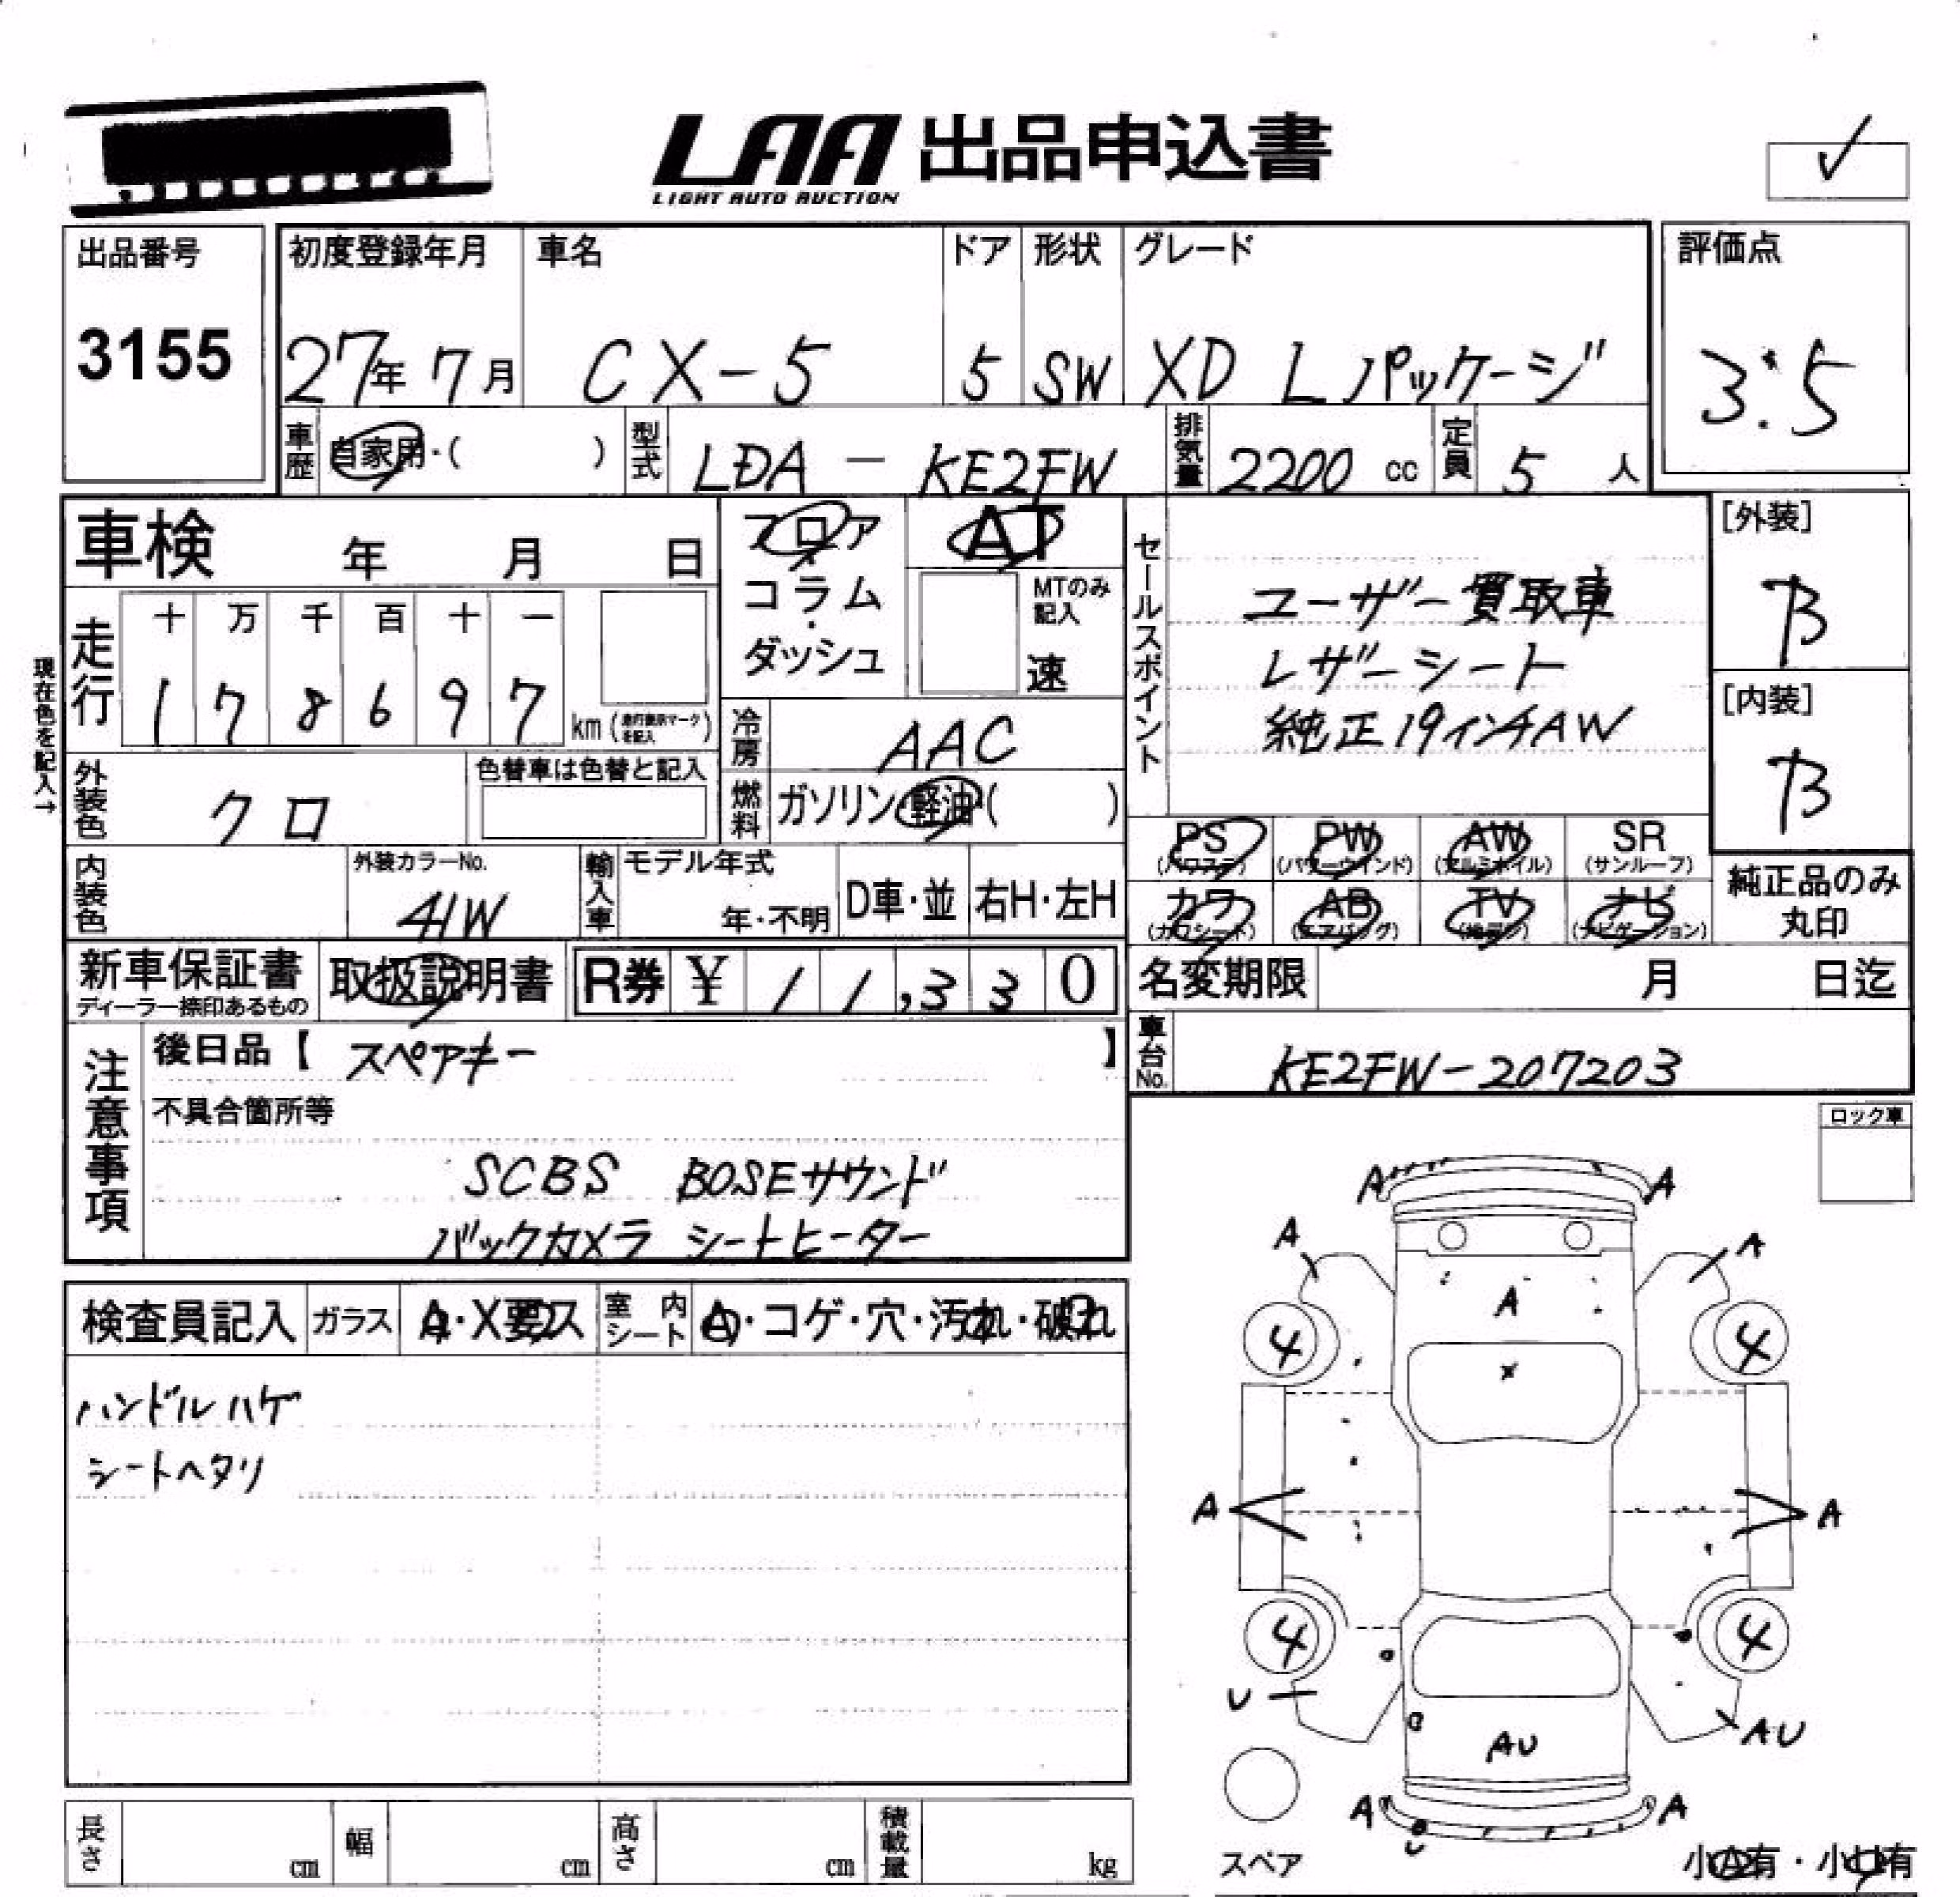 LAA 出品申込書
LIGHT AUTO AUCTION
✓
出品番号
3155
初度登録年月
27年 7月
車名
CX-5
ドア
5
形状
SW
グレード
XD Lパッケージ
評価点
3.5
車歴
自家用・( )
型式
LDA - KE2FW
排気量
2200 cc
定員
5 人
車検 年 月 日
フロア・コラム・ダッシュ
AT
MTのみ記入
速
セールスポイント
ユーザー買取車
レザーシート
純正19インチAW
[外装]
B
[内装]
B
現在色を記入→
走行
十 万 千 百 十 一
1 7 8 6 9 7
km (走行表示マークを記入)
冷房
AAC
燃料
ガソリン・軽油・( )
外装色
クロ
色替車は色替と記入
PS (パワステ)
PW (パワーウインド)
AW (アルミホイル)
SR (サンルーフ)
カワ (カワシート)
AB (エアバッグ)
TV
ナビ (ナビゲーション)
純正品のみ丸印
内装色
外装カラーNo.
41W
輸入車
モデル年式
年・不明
D車・並
右H・左H
新車保証書
ディーラー捺印あるもの
取扱説明書
R券 ¥ 11,330
名変期限 月 日迄
車台No.
KE2FW-207203
注意事項
後日品【 スペアキー 】
不具合箇所等
SCBS BOSEサウンド
バックカメラ シートヒーター
ロック車
検査員記入
ガラス
A・X要ス
室内シート
A・コゲ・穴・汚れ・破れ
ハンドルハゲ
シートヘタリ
A A
A A
A
4 4
×
A A
4 4
U
AU
AU
A A
U
スペア
小A有・小U有
長さ cm
幅 cm
高さ cm
積載量 kg